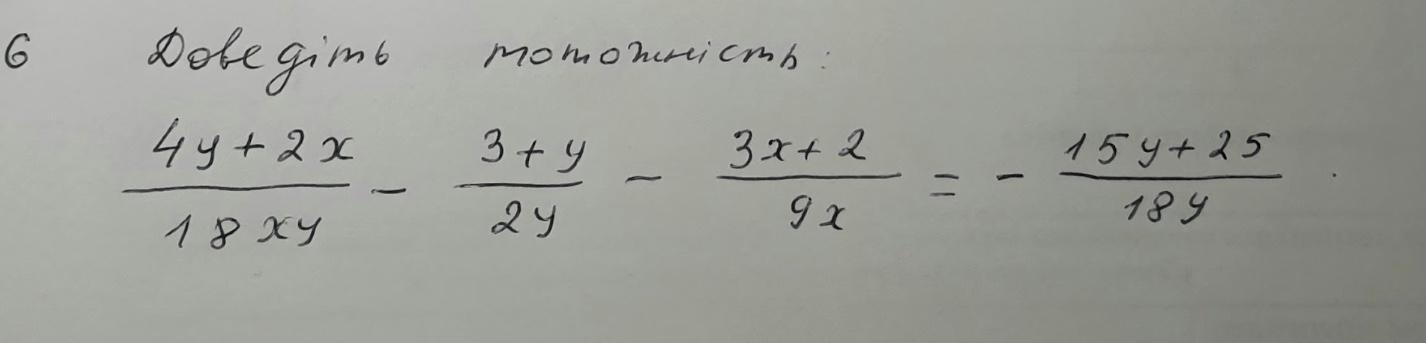 6 Доведіть тотожність:
4y + 2x / 18xy - 3 + y / 2y - 3x + 2 / 9x = - 15y + 25 / 18y .